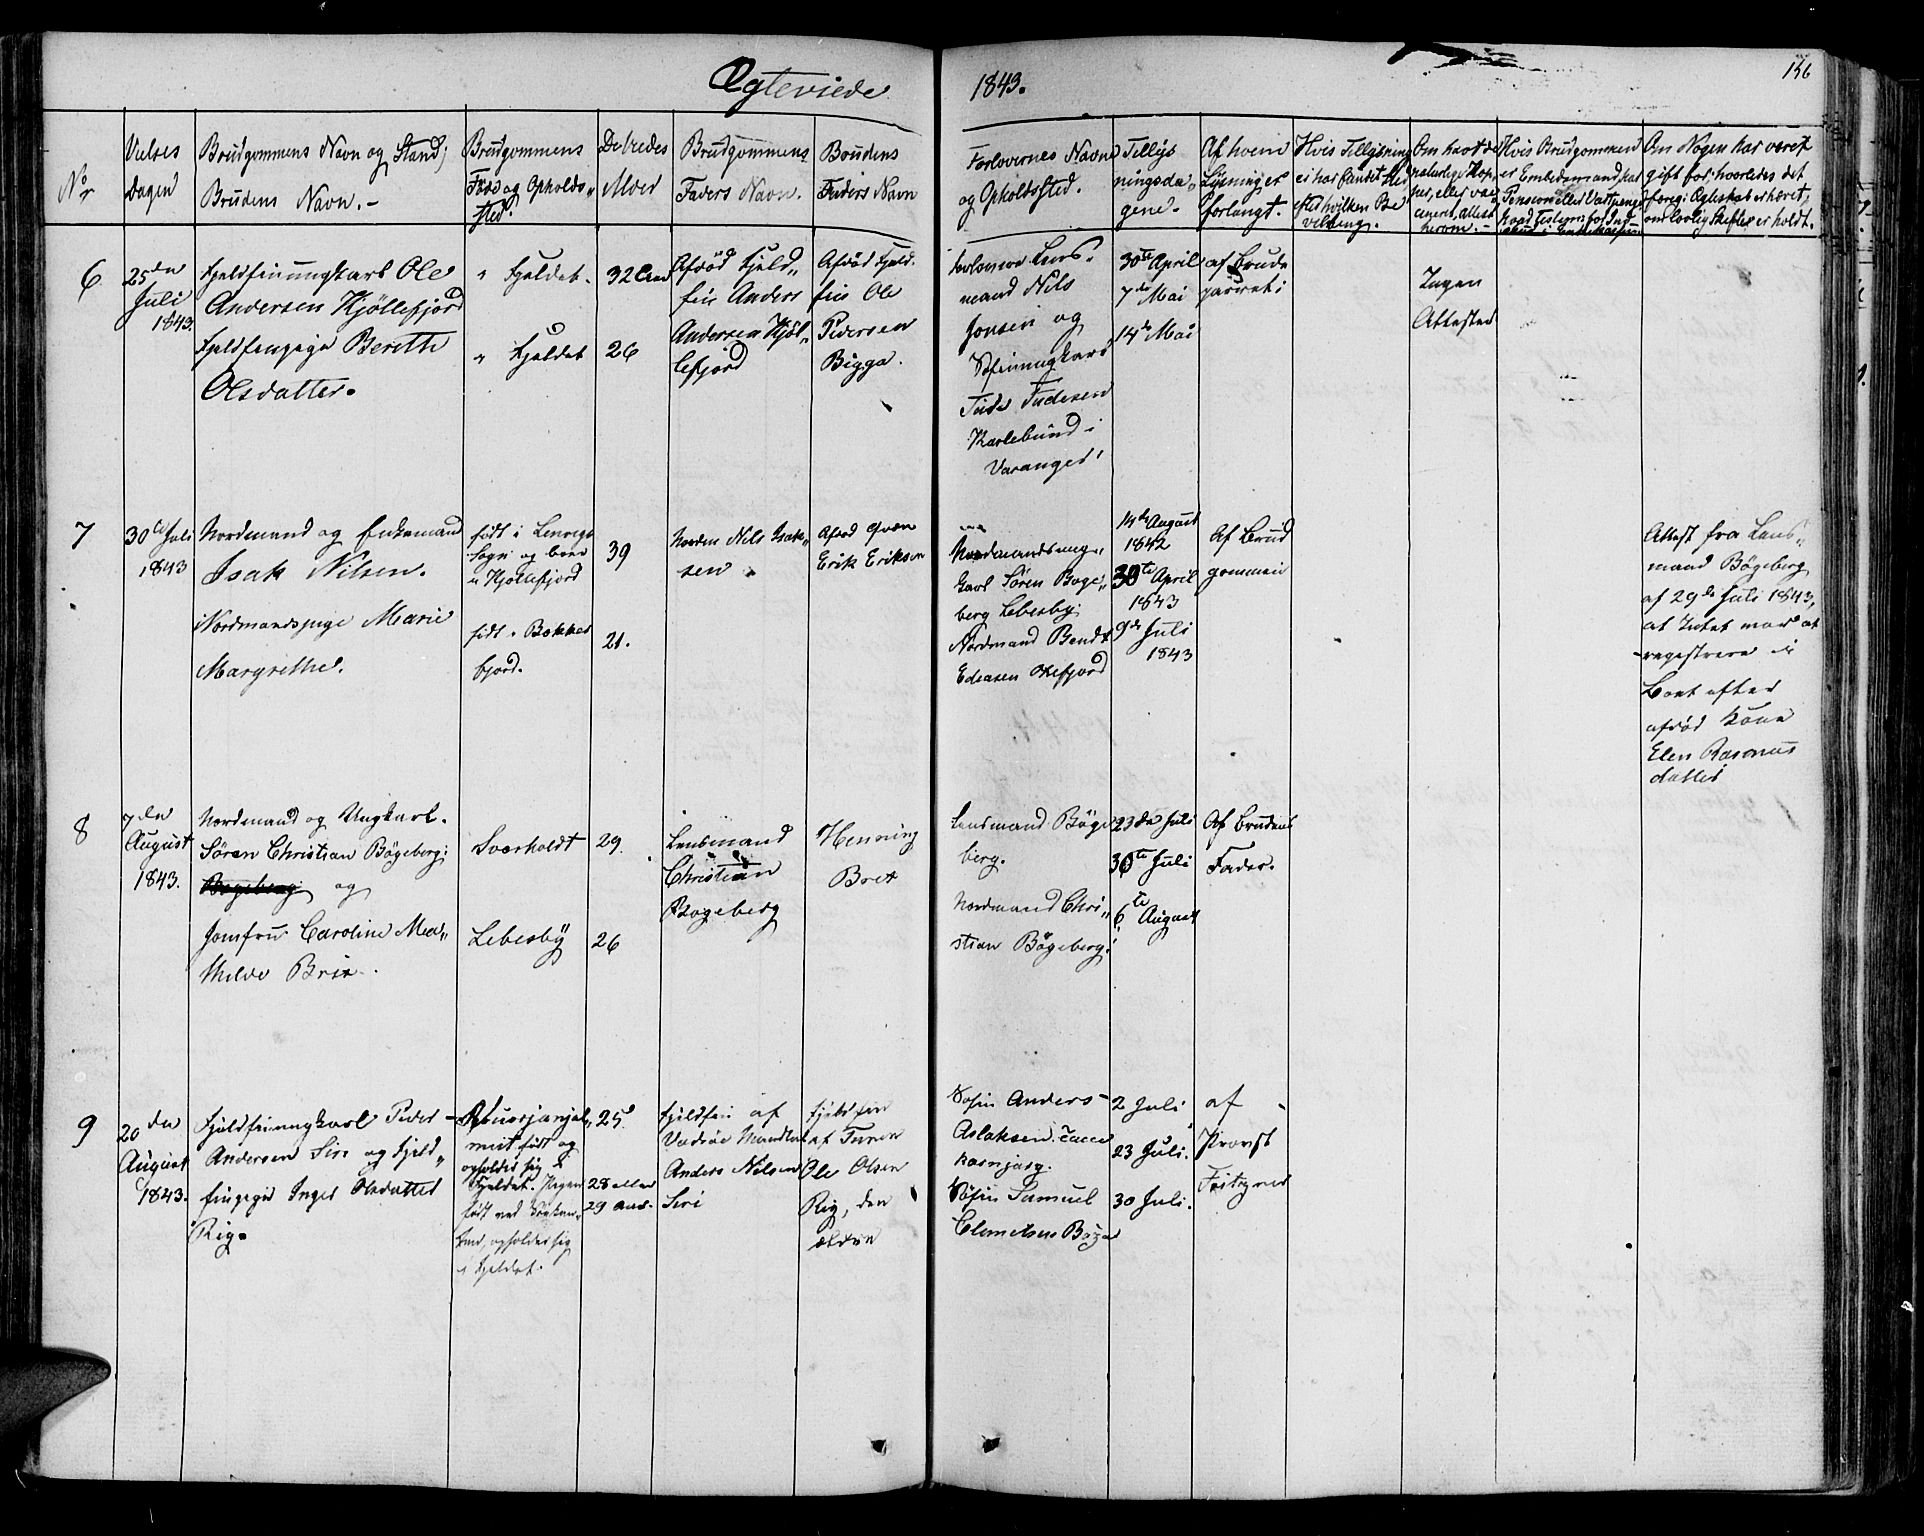 Ægteviede
1843.
156
No
Vielses
Dagen
Brudgommens Navn og Stand;
Brudens Navn.
Brudgommens
Føde og Opholds-
sted.
Deredes
Alder
Brudgommens
Faders Navn.
Brudens
Faders Navn
Forlovernes Navne
og Opholdsted.
Tillys
ningsda-
gene.
Af hvem
Lysning er
forlangt.
Hvis Tillysning
ei har fundet sted
efter hvilken Be
villing.
Om havt de
naturlige Kop
per, eller vac
cineret, attest
herom.
Hvis Brudgommen
er Embedsmand
Om Nogen har været
gift før; hvorledes det
forrige Ægteskab er hævet;
om lovlig Skifte er holdt.
6
25de
Juli
1843.
Fjeldfinungkarl Ole
Andersen Kjøllefjord
Fjeldfinpige Berethe
Olsdatter.
Fjeldet.
Fjeldet
32 Aar
26
Afdød Fjeld-
fin Anders
Andersen Kjøl-
lefjord
Afdød Fjeld-
fin Ole
Pedersen
Bigga.
Lens-
mand Nils
Jonsen og
Søfinungkarl
Karlebund i
Varanger.
30te April
7de Mai
14de Mai
af Brude
parret
Ingen
Attester
7
30te Juli
1843
Nordmand og Enkemand
Isak Nilsen.
Nordmandspige Marie
Margrethe.
født i Lenvigs
Sogn og boer
i Kjøllefjord
født i Bekker
fjord.
39
21.
Nordm Nils Isak-
sen
Afdød Qvæn
Erik Eriksen
Nordmandsung-
karl Søren Boge-
berg Lebesby;
Nordmand Bendt
14de August
1842
30te April
1843
9de Juli
1843
Af Brud
gommen
Attest fra Lens-
mand Bøgeberg
af 29de Juli 1843,
at Intet var at
registrere i
Boet efter
afdød Kone
Elen Rasmus
datter
8
7de
August
1843.
Nordmand og Ungkarl
Søren Christian Bøgeberg;
og
Jomfru Caroline Ma-
thilde Brix
Sværholdt
Lebesby
29.
26
Lensmand
Christian
Bøgeberg
Henning
Brix
Lensmand Bøge
berg.
Nordmand Chri-
stian Bøgeberg.
23de Juli
30te Juli
6te August
Af Brudens
Fader.
9
20de
August
1843.
Fjeldfinungkarl Peder
Andersen Siri og Fjeld-
finpige Inger Olsdatter
Rig.
født og
opholder sig i
Fjeldet. Pigen
født ved
opholder sig
i Fjeldet.
25
28 eller
29 Aar.
Fjeldfin af
Vadsøe
Anders Nilsen
Siri
Fjeldfin
af Tanen
Ole Olsen
Rig, den
ældre
Søfin Anders
Aslaksen
Søfin Samuel
Clemetsen
2 Juli
23 Juli.
30 Juli.
af
Provst